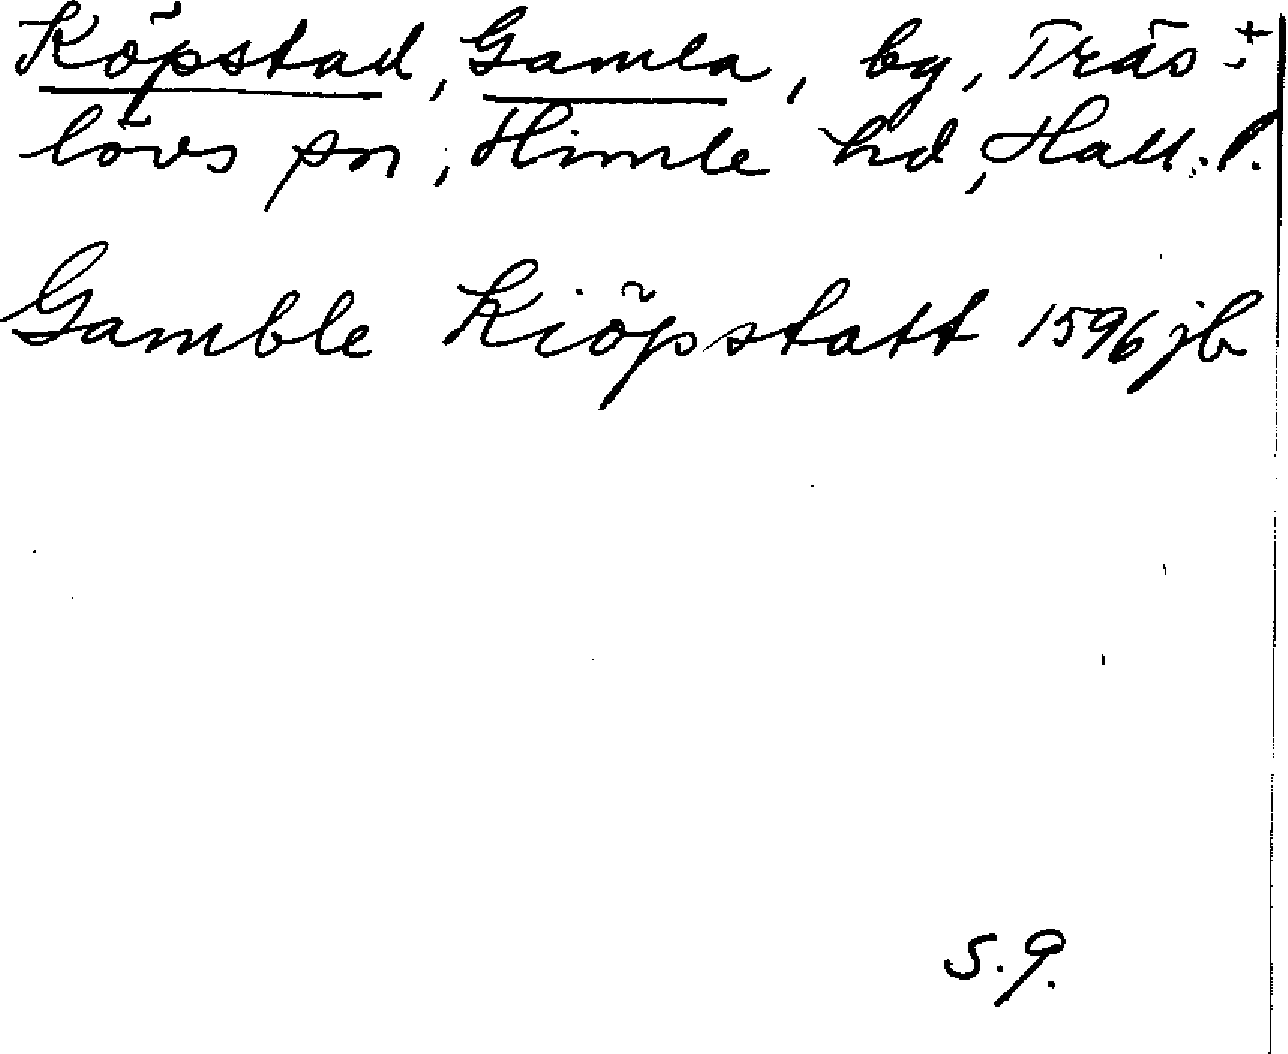 Köpstad, Gamla, by, Träs-
lövs sn, Himle hd, Hall. l.
Gamble Kiöpstatt 1596 jb
S. 9.